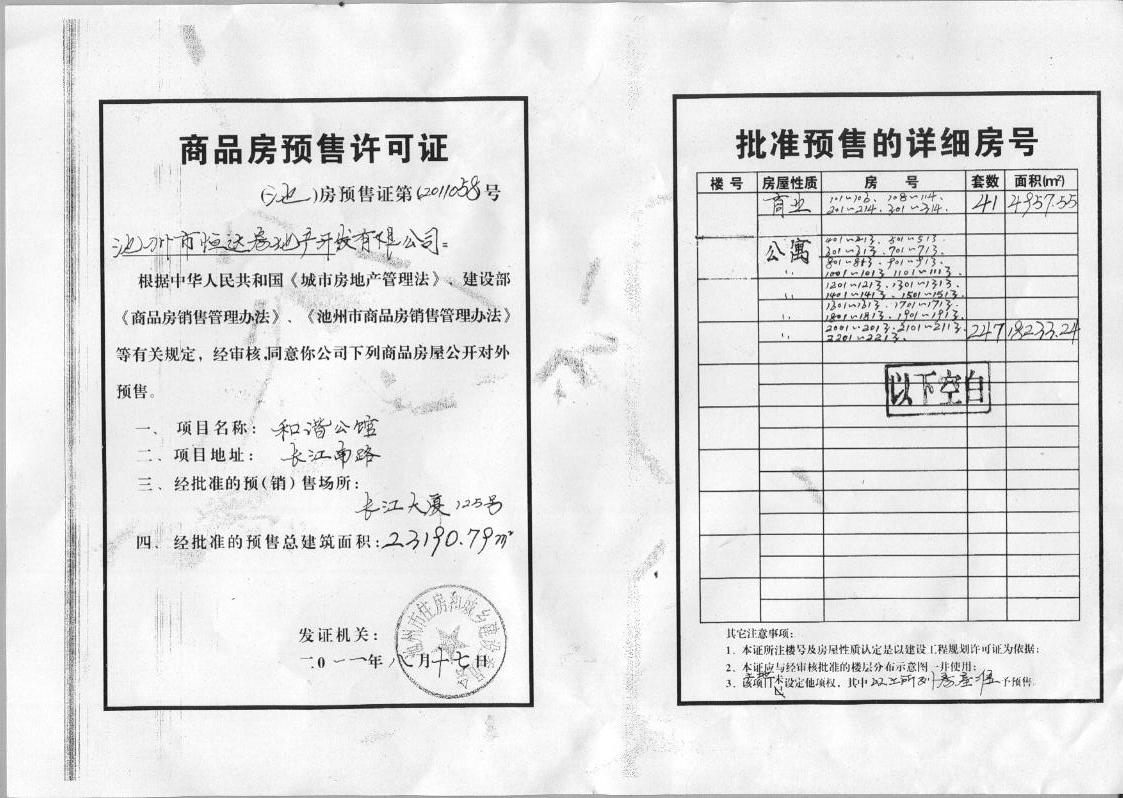 商品房预售许可证
(池)房预售证第(2011058号
池州市恒达房地产开发有限公司:
根据中华人民共和国《城市房地产管理法》、建设部
《商品房销售管理办法》、《池州市商品房销售管理办法》
等有关规定，经审核,同意你公司下列商品房屋公开对外
预售。
一、项目名称：和谐公馆
二、项目地址：长江南路
三、经批准的预(销)售场所：
长江大厦125号
四、经批准的预售总建筑面积：23190.79m²
发证机关：
二0一一年八月十七日
批准预售的详细房号
楼号 房屋性质 房号 套数 面积(m²)
商业 101~106、108~114、 41 4957.55
201~214、301~314、
公寓 401~413、501~513、
701~713、
801~813、901~913、
1001~1013、1101~1113、
1201~1213、1301~1313、
1401~1413、1501~1513、
1701~1713、
1801~1813、1901~1913、
2001~2013、2101~2113、 247 18233.24
2201~2213、
以下空白
其它注意事项：
1、本证所注楼号及房屋性质认定是以建设工程规划许可证为依据；
2、本证应与经审核批准的楼层分布示意图一并使用；
3、该项 设定他项权，其中 以上所列房 予预售